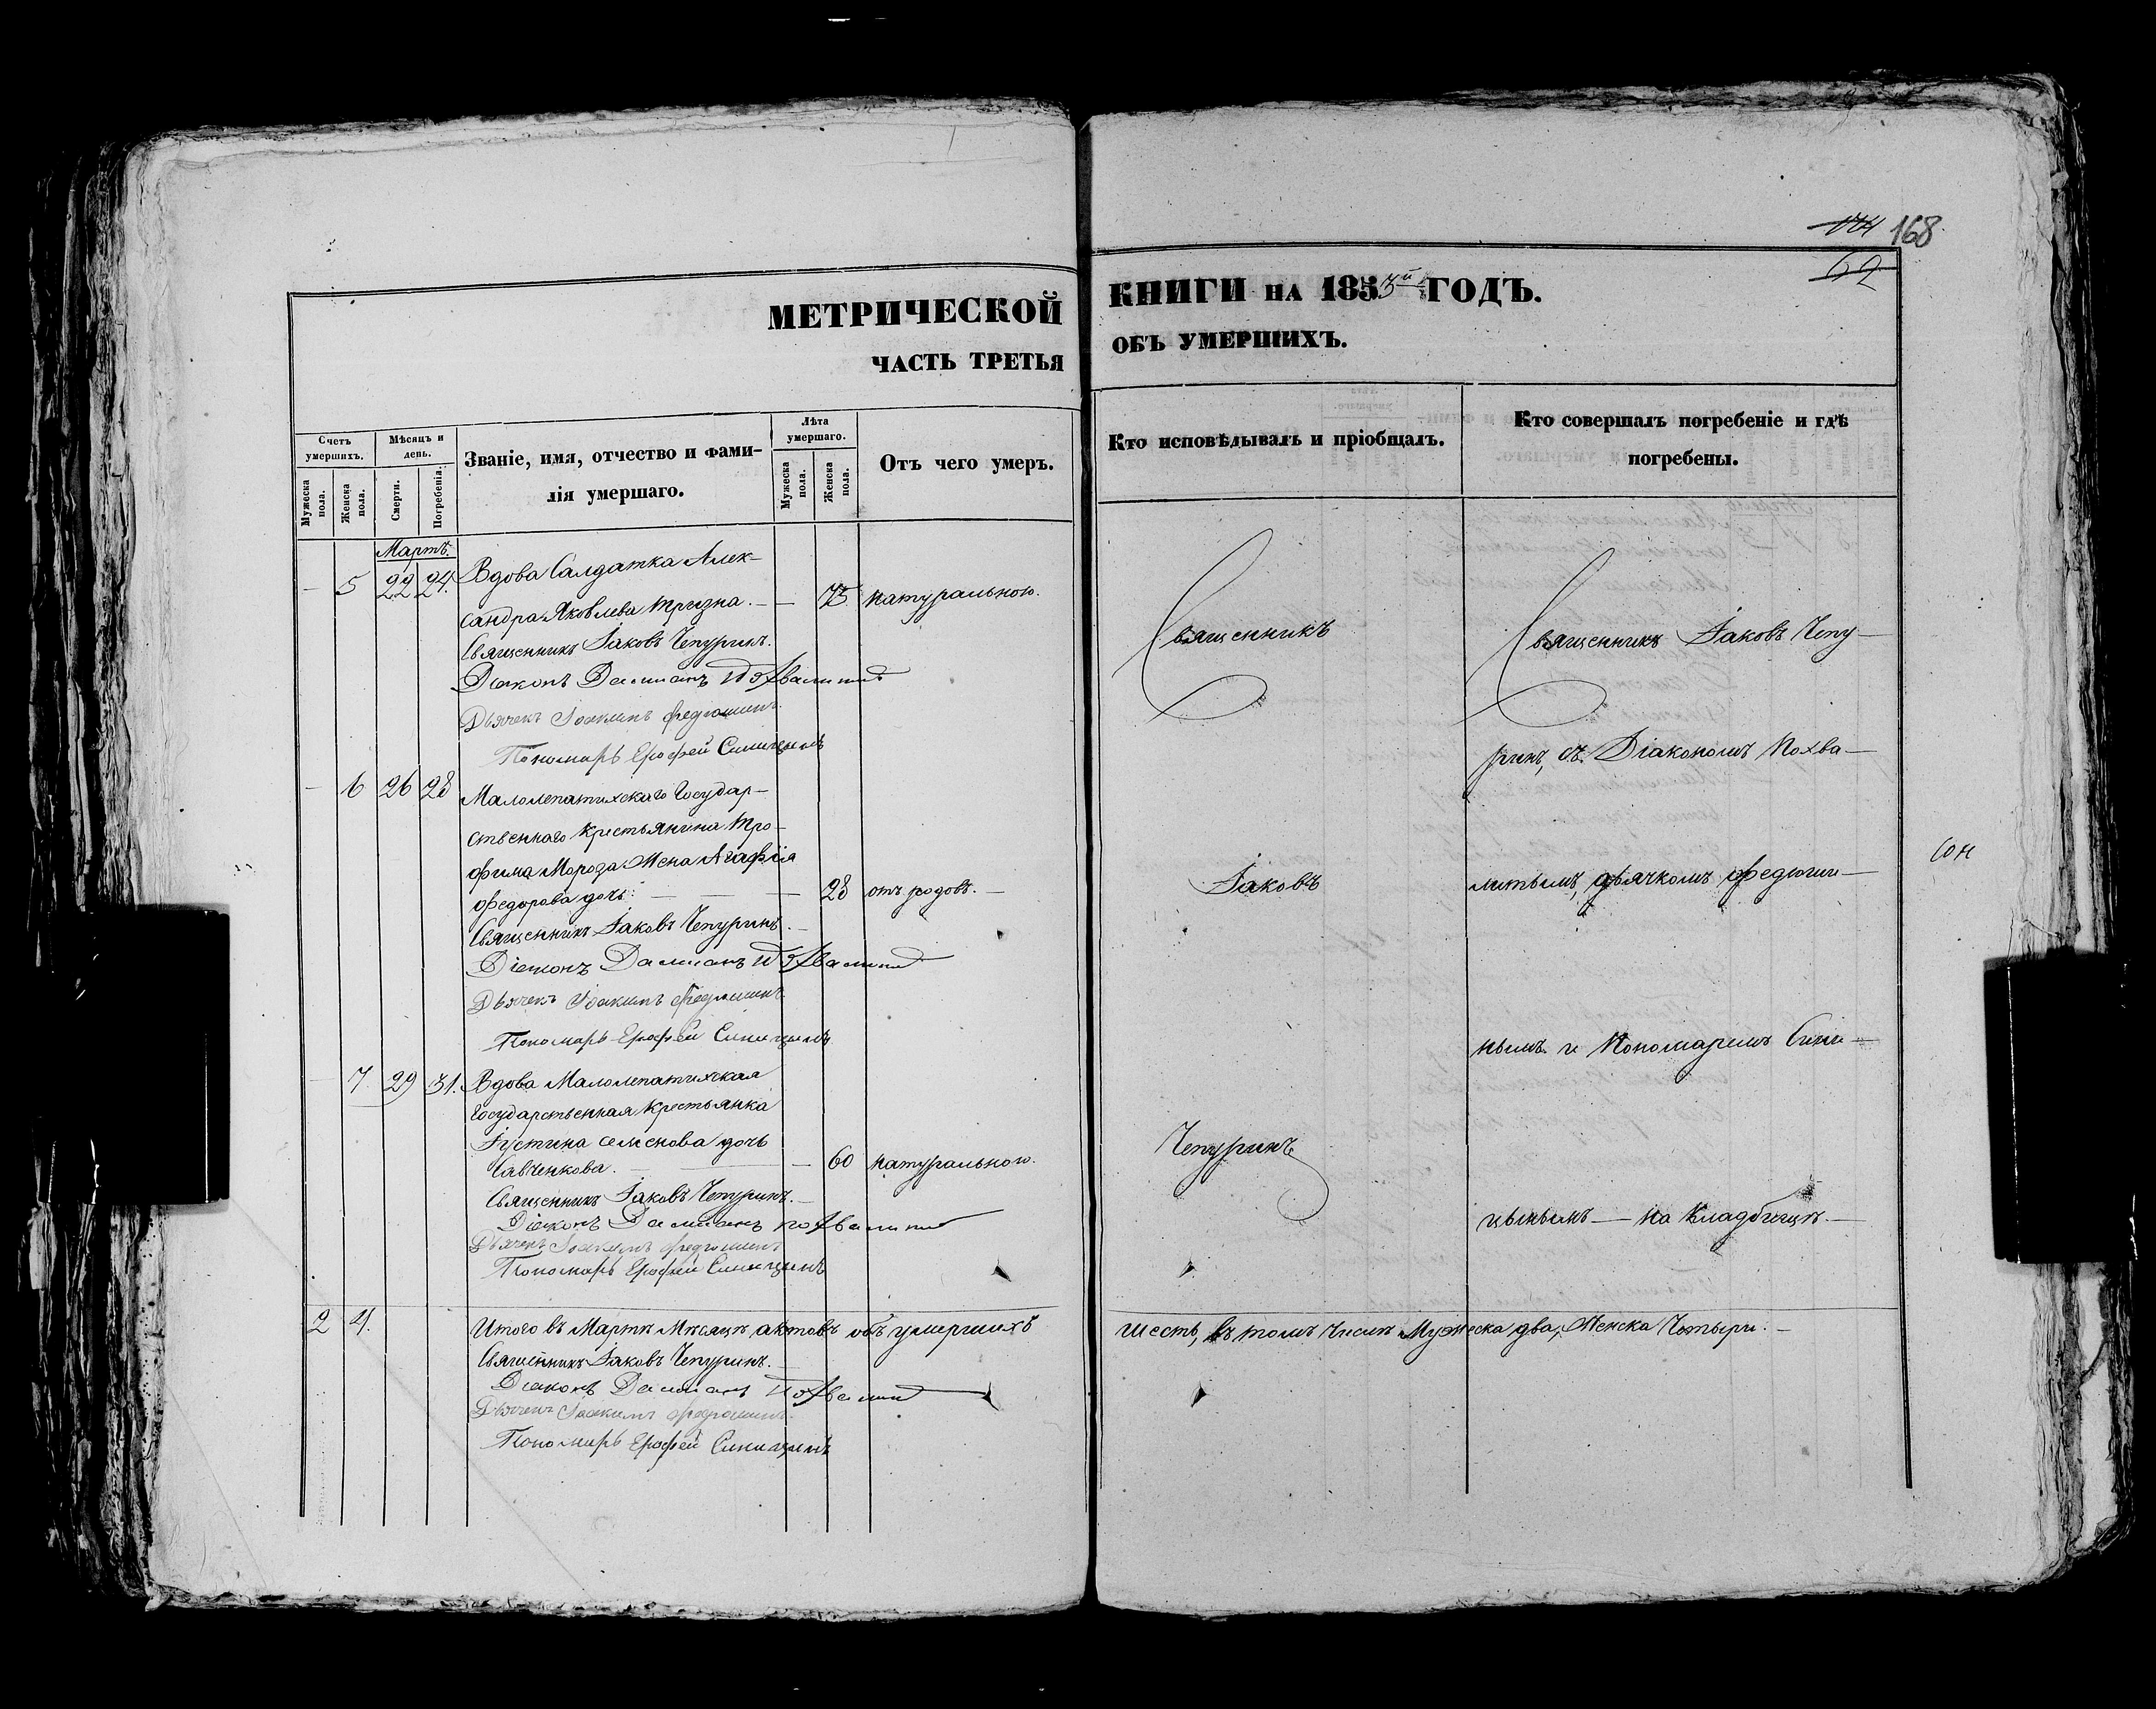 168
МЕТРИЧЕСКОЙ КНИГИ НА 1853й ГОДЪ.
ЧАСТЬ ТРЕТЬЯ ОБЪ УМЕРШИХЪ.
Счетъ умершихъ.
Мужеска пола.
Женска пола.
Мѣсяцъ и день.
Смерти.
Погребенія.
Званіе, имя, отчество и фами-
лія умершаго.
Лѣта умершаго.
Мужеска пола.
Женска пола.
Отъ чего умеръ.
Кто исповѣдывалъ и пріобщалъ.
Кто совершалъ погребеніе и гдѣ
погребены.
Мартъ.
— 5 22 24. Вдова Салдатка Алек-
сандра Яковлева Тризна. — — 75 натуральною.
Священникъ Іаковъ Чепуринъ.
Діаконъ Даміанъ Похвалитъ
Дьячекъ Іоакимъ Федюшинъ
Пономарь Ерофей Синицынъ
— 6 26 28 Малолепатихскаго Государ-
ственнаго крестьянина Тро-
фима Мороза Жена Агафія
Федорова дочь. — — 28 отъ родовъ. —
Священникъ Іаковъ Чепуринъ. —
Діаконъ Даміанъ
Дьячекъ Іоакимъ Федюшинъ
Пономарь Ерофей Синицынъ
7. 29 31. Вдова Малолепатихская
Государственная крестьянка
Іустина Семенова дочь
Савченкова. — — 60 натуральною.
Священникъ Іаковъ Чепуринъ. —
Діаконъ Даміанъ
Дьячекъ Іоакимъ Федюшинъ
Пономарь Ерофей Синицынъ
2 4. Итого въ Мартѣ Мѣсяцѣ актовъ объ умершихъ
Священникъ Іаковъ Чепуринъ. —
Діаконъ Даміанъ
Дьячекъ Іоакимъ Федюшинъ
Пономарь Ерофей Синицынъ
Священникъ
Іаковъ
Чепуринъ
Священникъ Іаковъ Чепу-
ринъ, съ Діакономъ Похва-
литымъ, дьячкомъ Федюши-
нымъ и Пономаремъ Сини-
цынымъ — на кладбищѣ. —
шесть, въ томъ числѣ Мужеска два, Женска Четыри. —